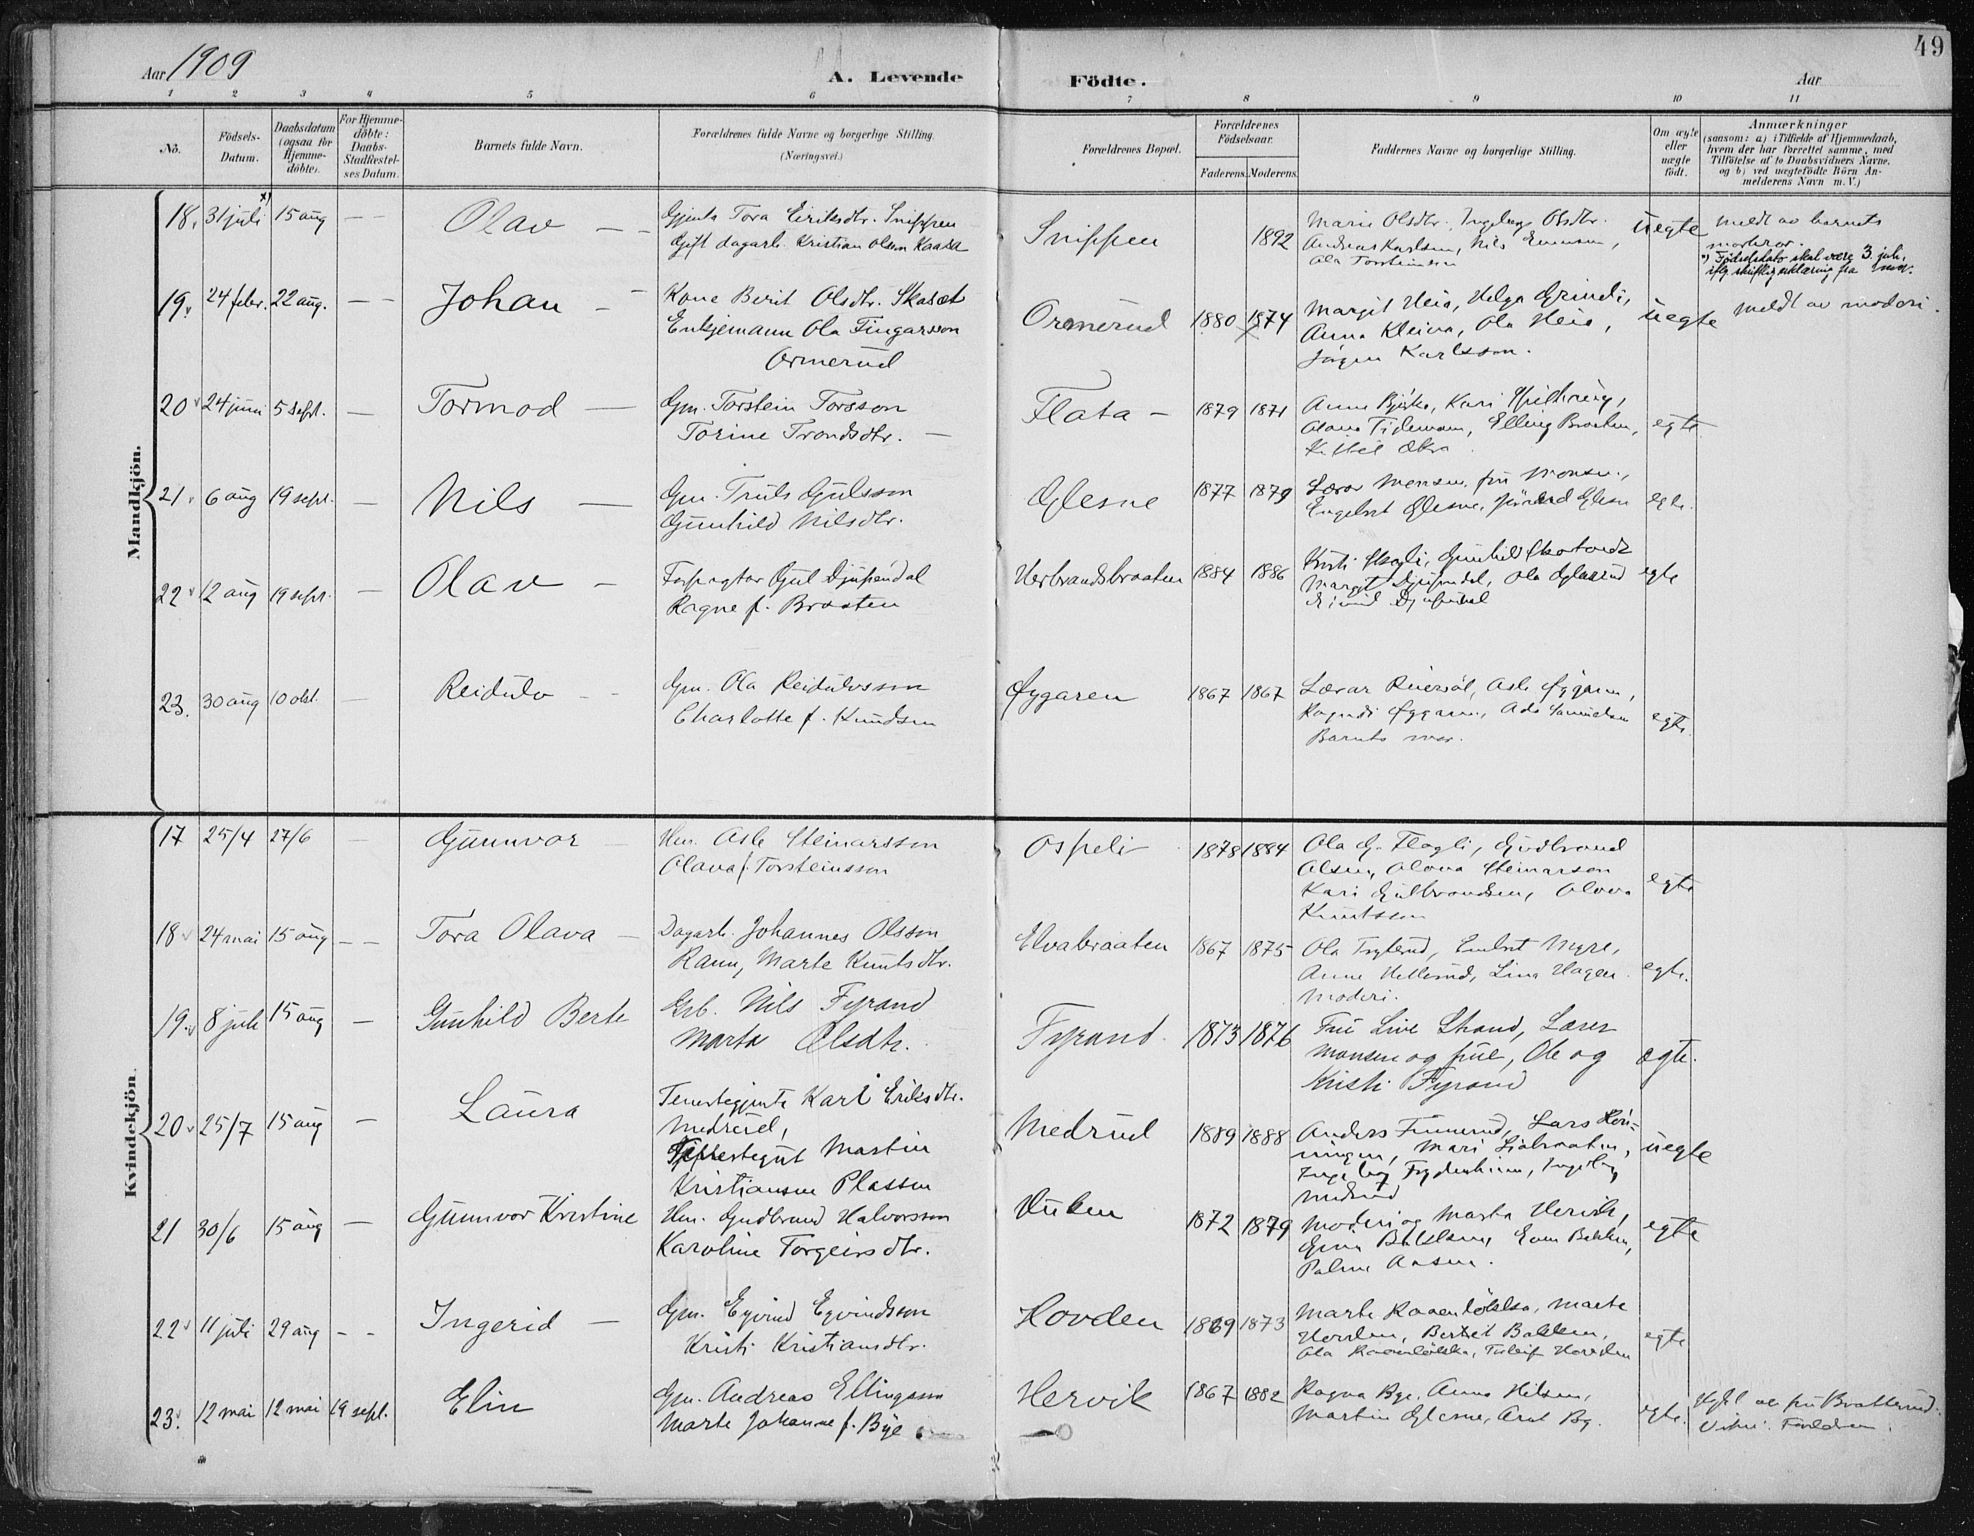 49
Aar 1909
A. Levende
Födte.
Aar
1 2 3 4 5 6 7 8 9 10 11
No.
Födsels-Datum.
Daabsdatum (ogsaa for Hjemme-döbte).
For Hjemme-döbte: Daabs-Stadfæstel-ses Datum.
Barnets fulde Navn.
Forældrenes fulde Navne og borgerlige Stilling.
(Næringsvei.)
Forældrenes Bopæl.
Forældrenes Födselsaar.
Faderens. Moderens.
Faddernes Navne og borgerlige Stilling.
Om ægte eller uægte födt.
Anmærkninger
(saasom: a) i Tilfælde af Hjemmedaab,
hvem der har forrettet samme, med
Tilföielse af to Daabsvidners Navne,
og b) ved uægtefödte Börn An-
melderens Navn m. V.)
Mandkjön.
18. 31 juli x) 15 aug — — Olav — — Gjenta Tora Eiriksdtr. Snippen
Gift dagarb. Kristian Olsen
Snippen 1892 Marie Olsdtr., Ingeborg Olsdtr.
Andreas Karlsen, Nils Evensen,
Ola Torsteinsen
uegte meldt av barnets
moderar.
x) Födselsdato skal være 3. juli,
iflg skriftlig erklæring fra
19. 24 febr. 22 aug. — — Johan — Kone Berit Olsdtr. Skaret
Enkjemann Ola Fingarsson
Ormerud
Ormerud 1880 1874 Margit Heia, Helga Grindi,
Anna Kleiva, Ola Heia,
Jörgen Karlsson.
uegte meldt av moderi.
20 24 juni 5 sept. — Tormod — Gm. Torstein Torsson
Torine Trondsdtr. —
Flata — 1879 1871 Anne Björke, Kari
Tidemann, Elling Braaten,
Kittil
egte
21. 6 aug 19 sept. — Nils — Gm. Truls Gulsson
Gunhild Nilsdtr.
Glesne 1877 1879 Lærar Monsen, fru Monsen,
Engebret Glesne, Glesne
egte.
22 12 aug 19 sept. — Olav — Forpagtar Gul Djupedal
Ragne f. Braaten
Herbrandsbraaten 1884 1886 Kristi Skagli, Gunhild
Margit Djupedal, Ola
Eivind Djupedal
egte
23. 30 aug 10 okt. — Reidulv — Gm. Ola Reidulvsson
Charlotte f. Knudsen
Øygaren 1867 1867 Lærar Asle Øygaren,
Øygaren, Samuelsen
Barnets mor.
egte.
Kvindekjön.
17 25/4 27/6 — Gunnvor — Hm. Asle Steinarsson
Olava f. Torsteinsson
Ospeli 1878 1884 Ola G. Flagli, Gudbrand
Olsen, Olava Steinarson
Kari Gulbrandsen, Olava
Knutsson
egte
18 24 mai 15 aug — — Tora Olava — Dagarb. Johannes Olsson
Marte Knutsdtr.
Elvabraaten 1867 1875 Ola Embret Myre,
Anne Hellerud, Lina Hagen
Moderi.
egte.
19. 8 juli 15 aug — Gunhild Berte Grb. Nils Fyrand
Marta Olsdtr.
Fyrand. 1873 1876 Fru Live Strand, Lærer
Monsen og frue, Ole og
Kristi Fyrand
ægte.
20 25/7 15 aug — Laura Tenestegjente Kari Eriksdtr.
Medrud,
Martin
Kristiansen Plassen
Medrud 1889 1888 Anders Lars
Mari
Ingeborg Ingeborg
Medrud
uegte
21 30/6 15 aug — Gunnvor Kristine Hm. Gudbrand Halvorsson
Karoline Torgeirsdtr.
1872 1879 Moderi og Marta Hervik,
Even Bakken,
Palma Aasen.
egte
22 11 juli 29 aug — — Ingerid — Gm. Eyvind Eyvindsson
Kristi Kristiansdtr.
Hovden 1869 1873 Marte Marte
Hovden, Bertel Bakken,
Ola Hovden
egte
23. 12 mai 12 mai 19 sept. Elin Gm. Andreas Ellingsen
Marte Johanne f. Bye
Hervik 1867 1882 Ragna Bye, Anna Nilsen,
Martin Glesne, Bye.
egte. Hjd. av fru Bratterud.
Vitni: Foreldren.